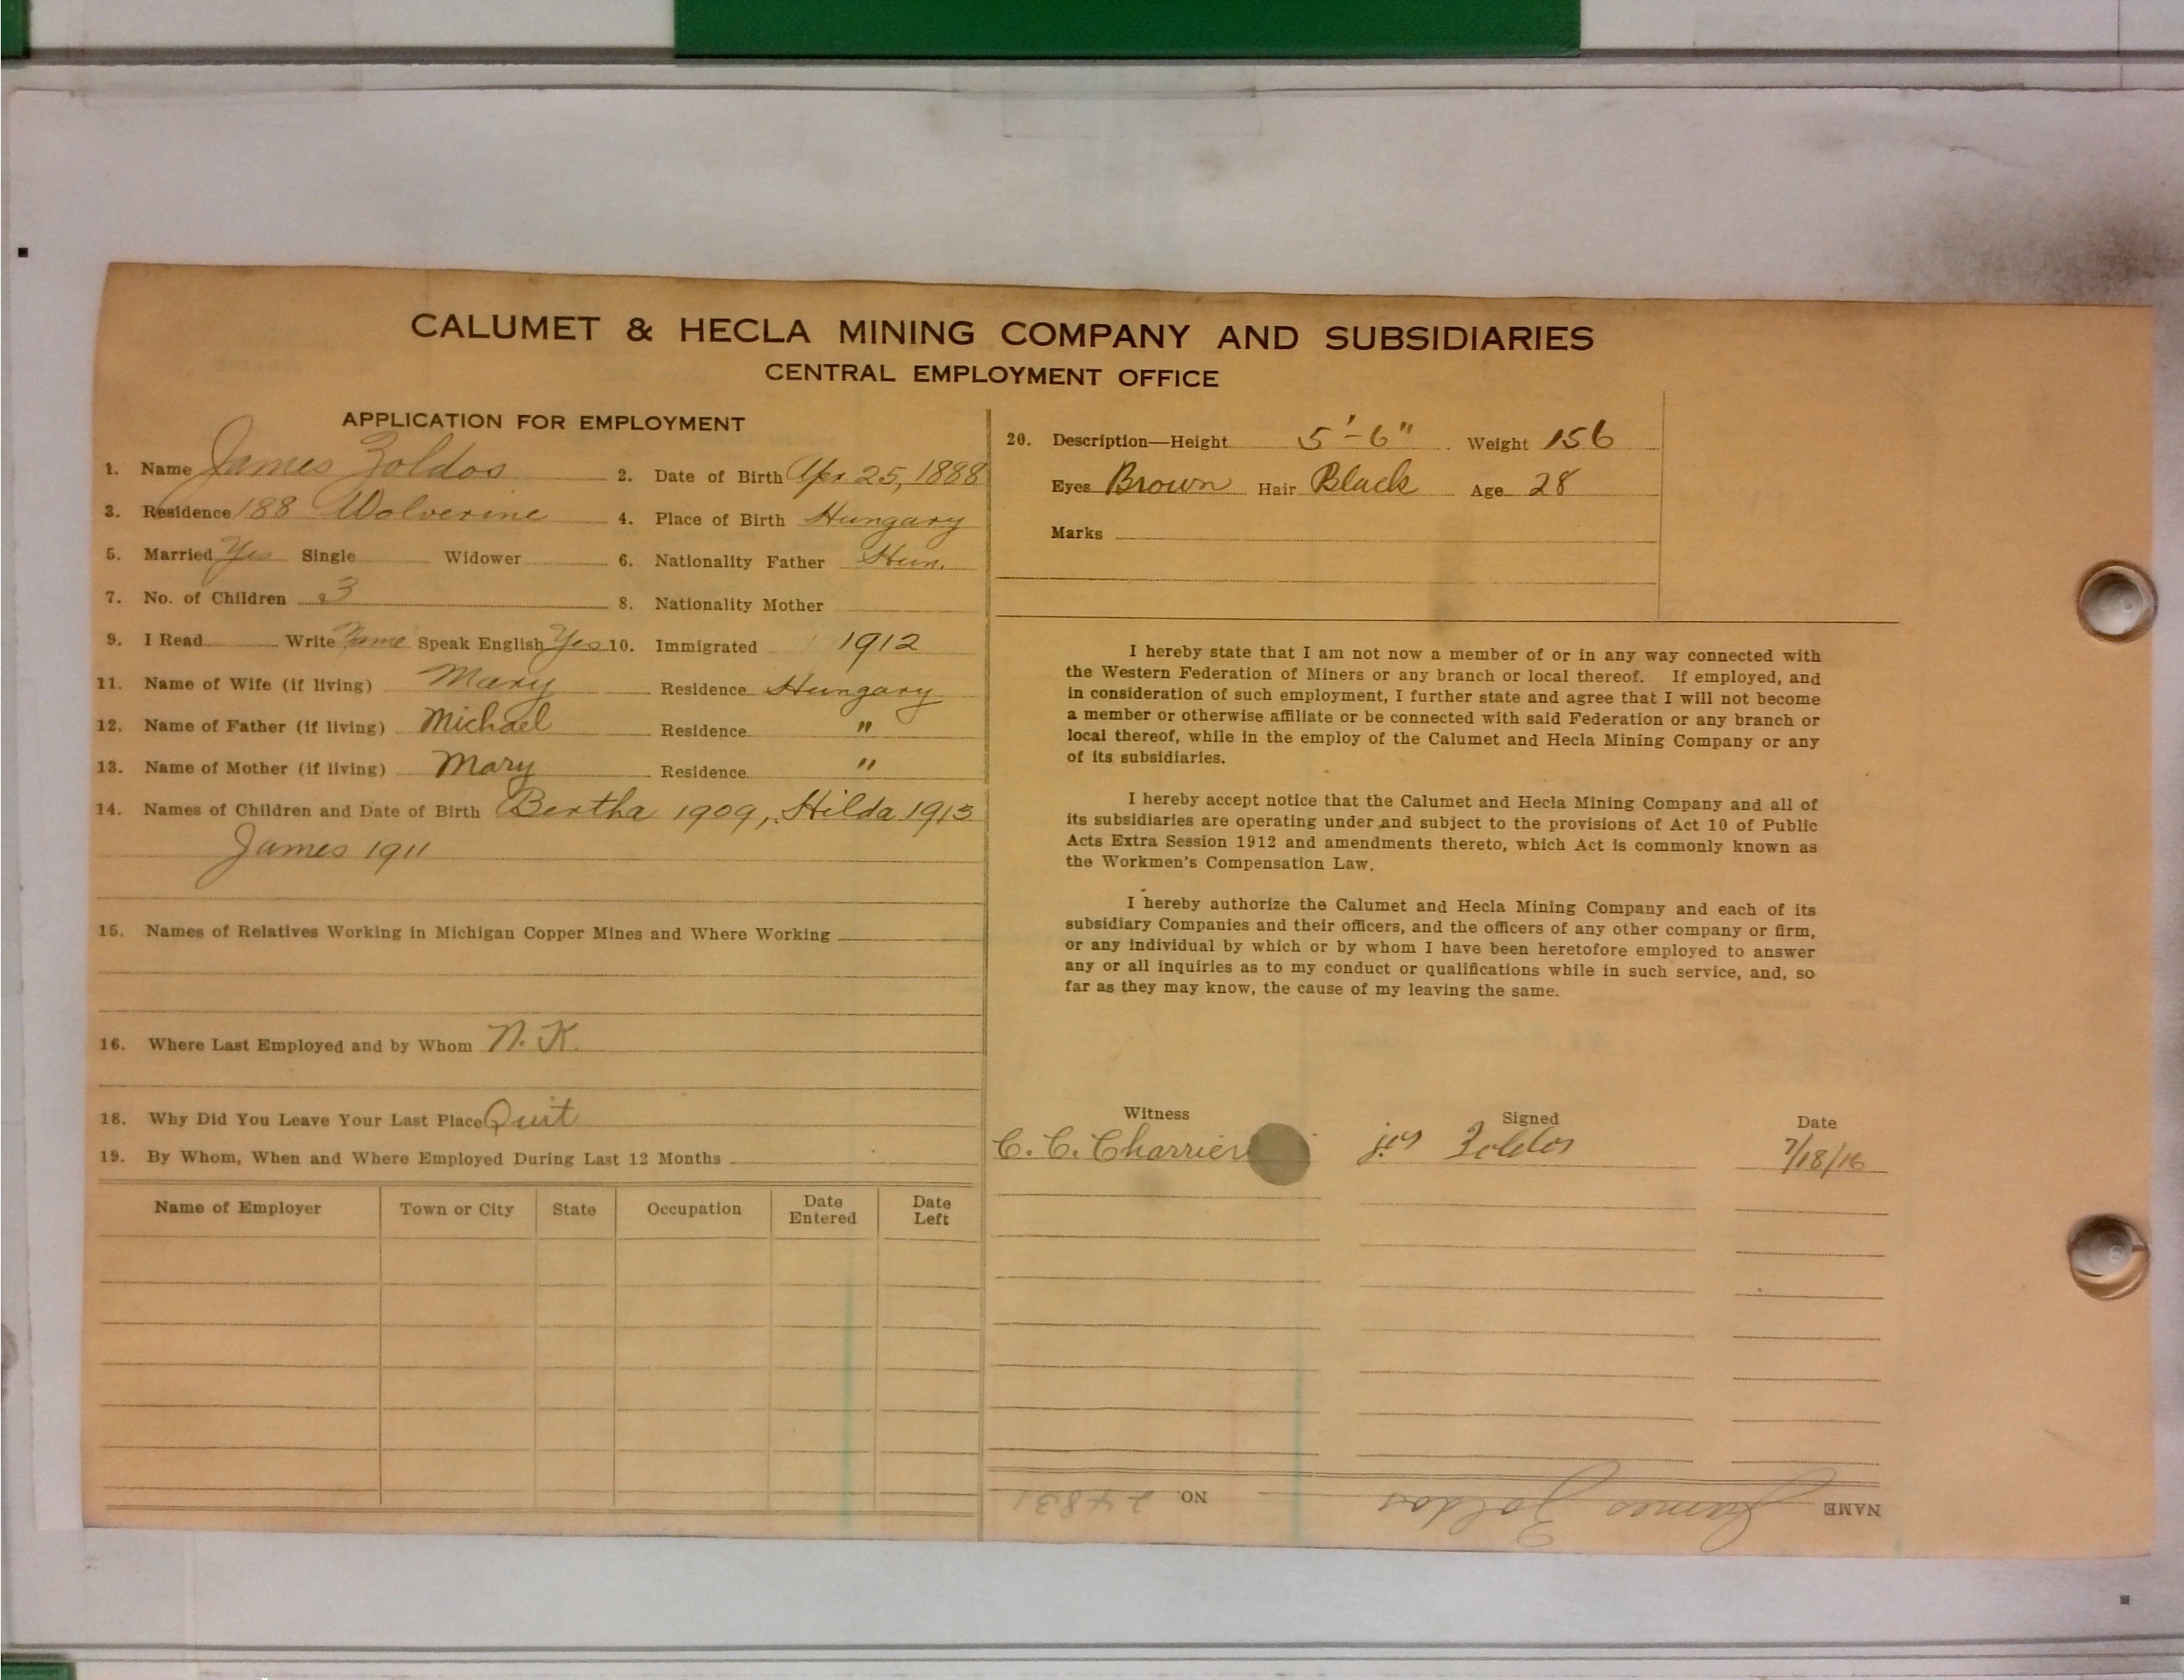 CALUMET & HECLA MINING COMPANY AND SUBSIDIARIES
CENTRAL EMPLOYMENT OFFICE
APPLICATION FOR EMPLOYMENT
1. Name James Zoldos 2. Date of Birth Apr 25, 1888
3. Residence 188 Wolverine 4. Place of Birth Hungary
5. Married Yes Single Widower 6. Nationality Father Hun.
7. No. of Children 3 8. Nationality Mother
9. I Read Write Speak English Yes 10. Immigrated 1912
11. Name of Wife (if living) Mary Residence Hungary
12. Name of Father (if living) Michael Residence "
13. Name of Mother (if living) Mary Residence "
14. Names of Children and Date of Birth Bertha 1909, Hilda 1913
James 1911
15. Names of Relatives Working in Michigan Copper Mines and Where Working
16. Where Last Employed and by Whom N. K.
18. Why Did You Leave Your Last Place Quit
19. By Whom, When and Where Employed During Last 12 Months
Name of Employer Town or City State Occupation Date Entered Date Left
20. Description—Height 5'-6" Weight 156
Eyes Brown Hair Black Age 28
Marks
I hereby state that I am not now a member of or in any way connected with
the Western Federation of Miners or any branch or local thereof. If employed, and
in consideration of such employment, I further state and agree that I will not become
a member or otherwise affiliate or be connected with said Federation or any branch or
local thereof, while in the employ of the Calumet and Hecla Mining Company or any
of its subsidiaries.
I hereby accept notice that the Calumet and Hecla Mining Company and all of
its subsidiaries are operating under and subject to the provisions of Act 10 of Public
Acts Extra Session 1912 and amendments thereto, which Act is commonly known as
the Workmen's Compensation Law.
I hereby authorize the Calumet and Hecla Mining Company and each of its
subsidiary Companies and their officers, and the officers of any other company or firm,
or any individual by which or by whom I have been heretofore employed to answer
any or all inquiries as to my conduct or qualifications while in such service, and, so
far as they may know, the cause of my leaving the same.
Witness Signed Date
C. C. Charrier Zoldos 7/18/16
NAME James Zoldos NO. 24831